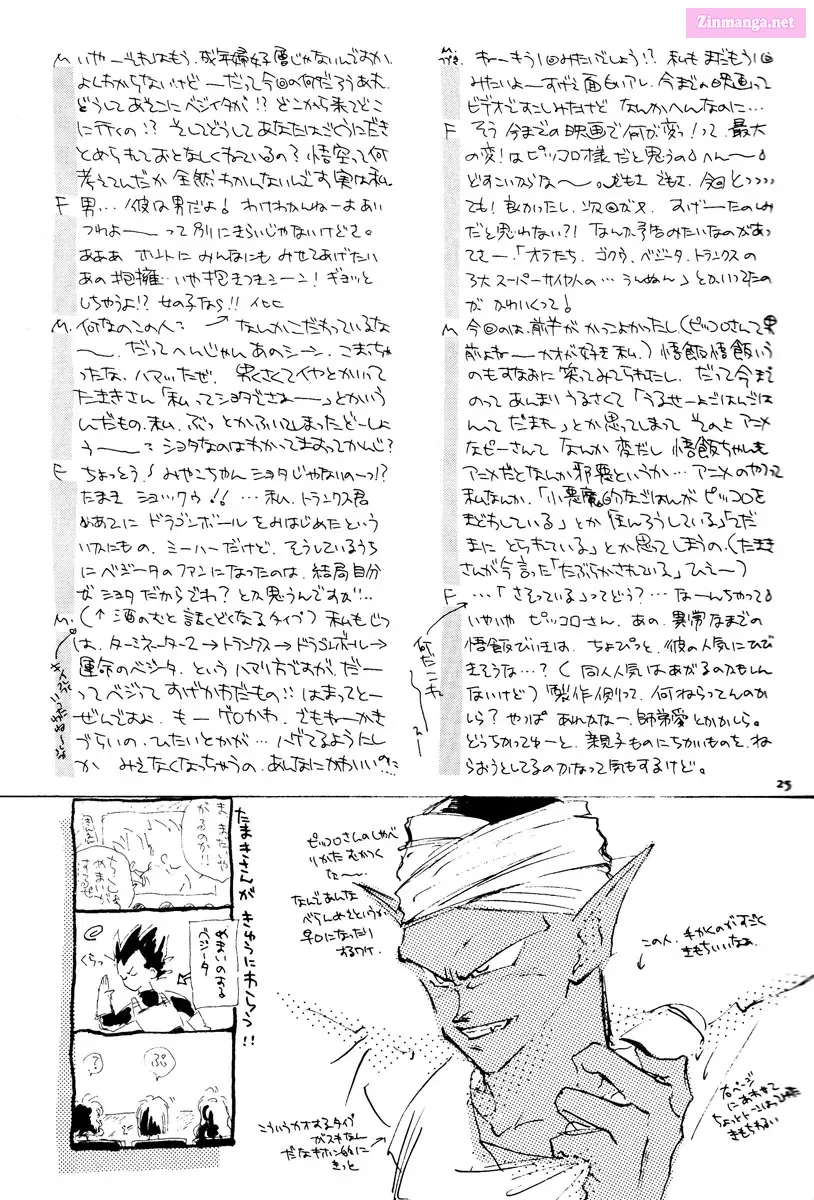 Zinmanga.net
M. いやーそれはもう、成年婦女子層じゃないんですか。
よくわからないけど ーだって今回の何だろうあ丈
どうしてあそこにベジイタが!? どこから来てどこ
に行くの!? そしてどうしてあなたはごくうにだき
とめられておとなしくねているの? 悟空って何
考えてんだか 全然わかんないんです実は私
F 男…!彼は男だよ! わけわかんねーよ あい
つわよー〜って別にきらいじゃないけどさ。
あああ ホントに みんなにも みせてあげたい
あの抱擁…いや抱きつきシーン! ギョッと
しちゃうよ!? 女の子なら!! イヒヒ
M. 何なのこの人? → なんかこだわっているな
ー〜。だってへんじゃん あのシーン。こまっちゃ
ったな、ハマッたぜ。男くさくてイヤとかいって
たまきさん「私ってショタでさあー〜」とかいう
んだもの、私、ぶっとかふいてしまったどーしよ
うー〜? ショタなのはわかってますってかんじ?
F ちょっとう! みやこちゃん ショタじゃないのーっ!?
たまき ショックゥ!! …私、トランクス君
めあてに ドラゴンボール をみはじめたという
いかにもの、ミーハーだけど、そうしているうち
にベジータのファンになったのは、結局自分
が ショタだからでわ? とか思うんですが…
M. (↑酒のむと話くどくなるタイプ) 私もじつ
は、ターミネーター2→トランクス→ドラゴンボール→
運命のベジータ、というハマり方ですが、だー
ってベジってすげかわだもの!! はまってとー
ぜんですよ、もー ゲロかわ、でもねーかき
づらいの、ひたいとかが… ハゲてるようにし
か みえなくなっちゃうの、あんなにかわいいのに
M.つづき. ねーもう1回みたいでしょう!? 私も まだもう1回
みたいよーすげえ面白いアレ、今までの映画って
ビデオですこしみたけど なんかへんなのに…
F そう 今までの映画で何が変!って、最大
の変!はピッコロ様だと思うの! へんー〜!
どすこいからなー〜。でもさ でもさ、今回とっっっっ
ても! 良かったし、次回がメ、すげーたのしみ
だと思わない?! なんか予告みたいなのがあっ
てさー、「オラたち、ゴクウ、ベジータ、トランクスの
3大スーパーサイヤ人の… うんぬん」とかいってたの
が かわいくって!
M 今回のは、前半が かっこよかったし(ピッコロさんて男
前よねー カオが好き私。) 悟飯悟飯いう
のもすなおに笑ってみてられたし、だって今まで
のってあんまいうるさくて「うるせーよごはんごは
んて だまれ」とか思ってしまって そのよアニメ
なピーさんて なんか変だし 悟飯ちゃんも
アニメだとなんか邪悪というか… アニメのやつって
私なんか、「小悪魔的なごはんが ピッコロを
まどわしている」とか「ほんろうしている」「うだ
まに とられている」とか思ってしまうの、(たまき
さんが今言った「たぶらかされている」ひえー〜)
F …「さそっている」ってどう? …なーんちゃって!
いやいや ピッコロさん、あの、異常なまでの
悟飯びいきは、ちょぴっと、彼の人気にひび
きそうな…? (同人人気はあがるのかもしん
ないけど) 製作側って、何ねらってんのか
しら? やっぱ あれかなー、師弟愛とかかしら。
どっちかってゆーと、親子ものにちかいものを、ね
らおうとしてるのかなって気もするけど。
何だこれ
25
ま まだや
がるのか!!
ちくしょお
めまいが
するぜ
たまきさんが きゅうにわらう!!
めまいのする
ベジータ
くらっ
?
ぷ
ピッコロさんのしゃべ
りかた むかつく
なー〜。
なんであんな
べらんめえというか
早口になったり
するワケ
この人、手かくのがすごく
きもちいいなあ。
こういうカオするタイプ
がスキなん
だなキホン的に
きっと
右ページ
にあわせて
ちょっとトーンはってみた
きもちわるい